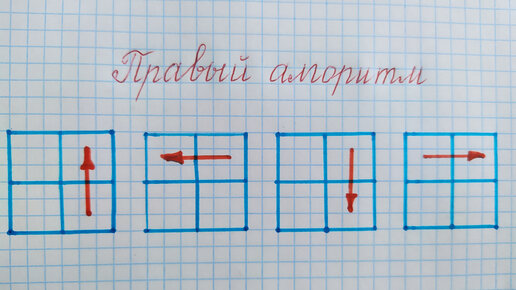 Правый алгоритм